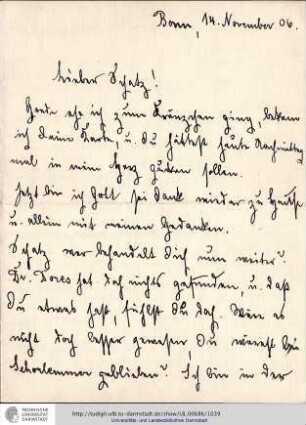 Bonn, 14. November 06.
Lieber Schatz!
Gerade ehe ich zum Kränzchen ging, bekam
ich deine Karte, u. du hättest heute Nachmittag
mal in mein Herz gucken sollen.
Jetzt bin ich Gott sei Dank wieder zu Hause
u. allein mit meinen Gedanken.
Schatz wer behandelt dich nun weiter?
Dr. Dores hat doch nichts gefunden, u. daß
du etwas hast, fühlst du doch. Wäre es
nicht doch besser gewesen, du wärest bei
Schorlemmer geblieben? Ich bin in der
TECHNISCHE UNIVERSITÄT DARMSTADT
http://tudigit.ulb.tu-darmstadt.de/show/LB.00686/1039
Universitäts- und Landesbibliothek Darmstadt